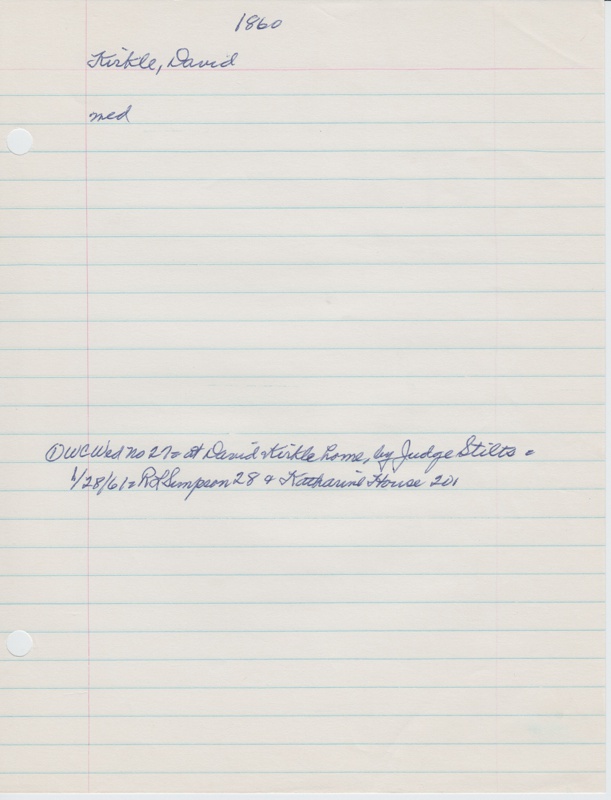 1860
Kirkle, David
med
① WC Wed no 27 = at David Kirkle home, by Judge Stilts =
1/28/61 = R L Simpson 28 & Katharine House 20.